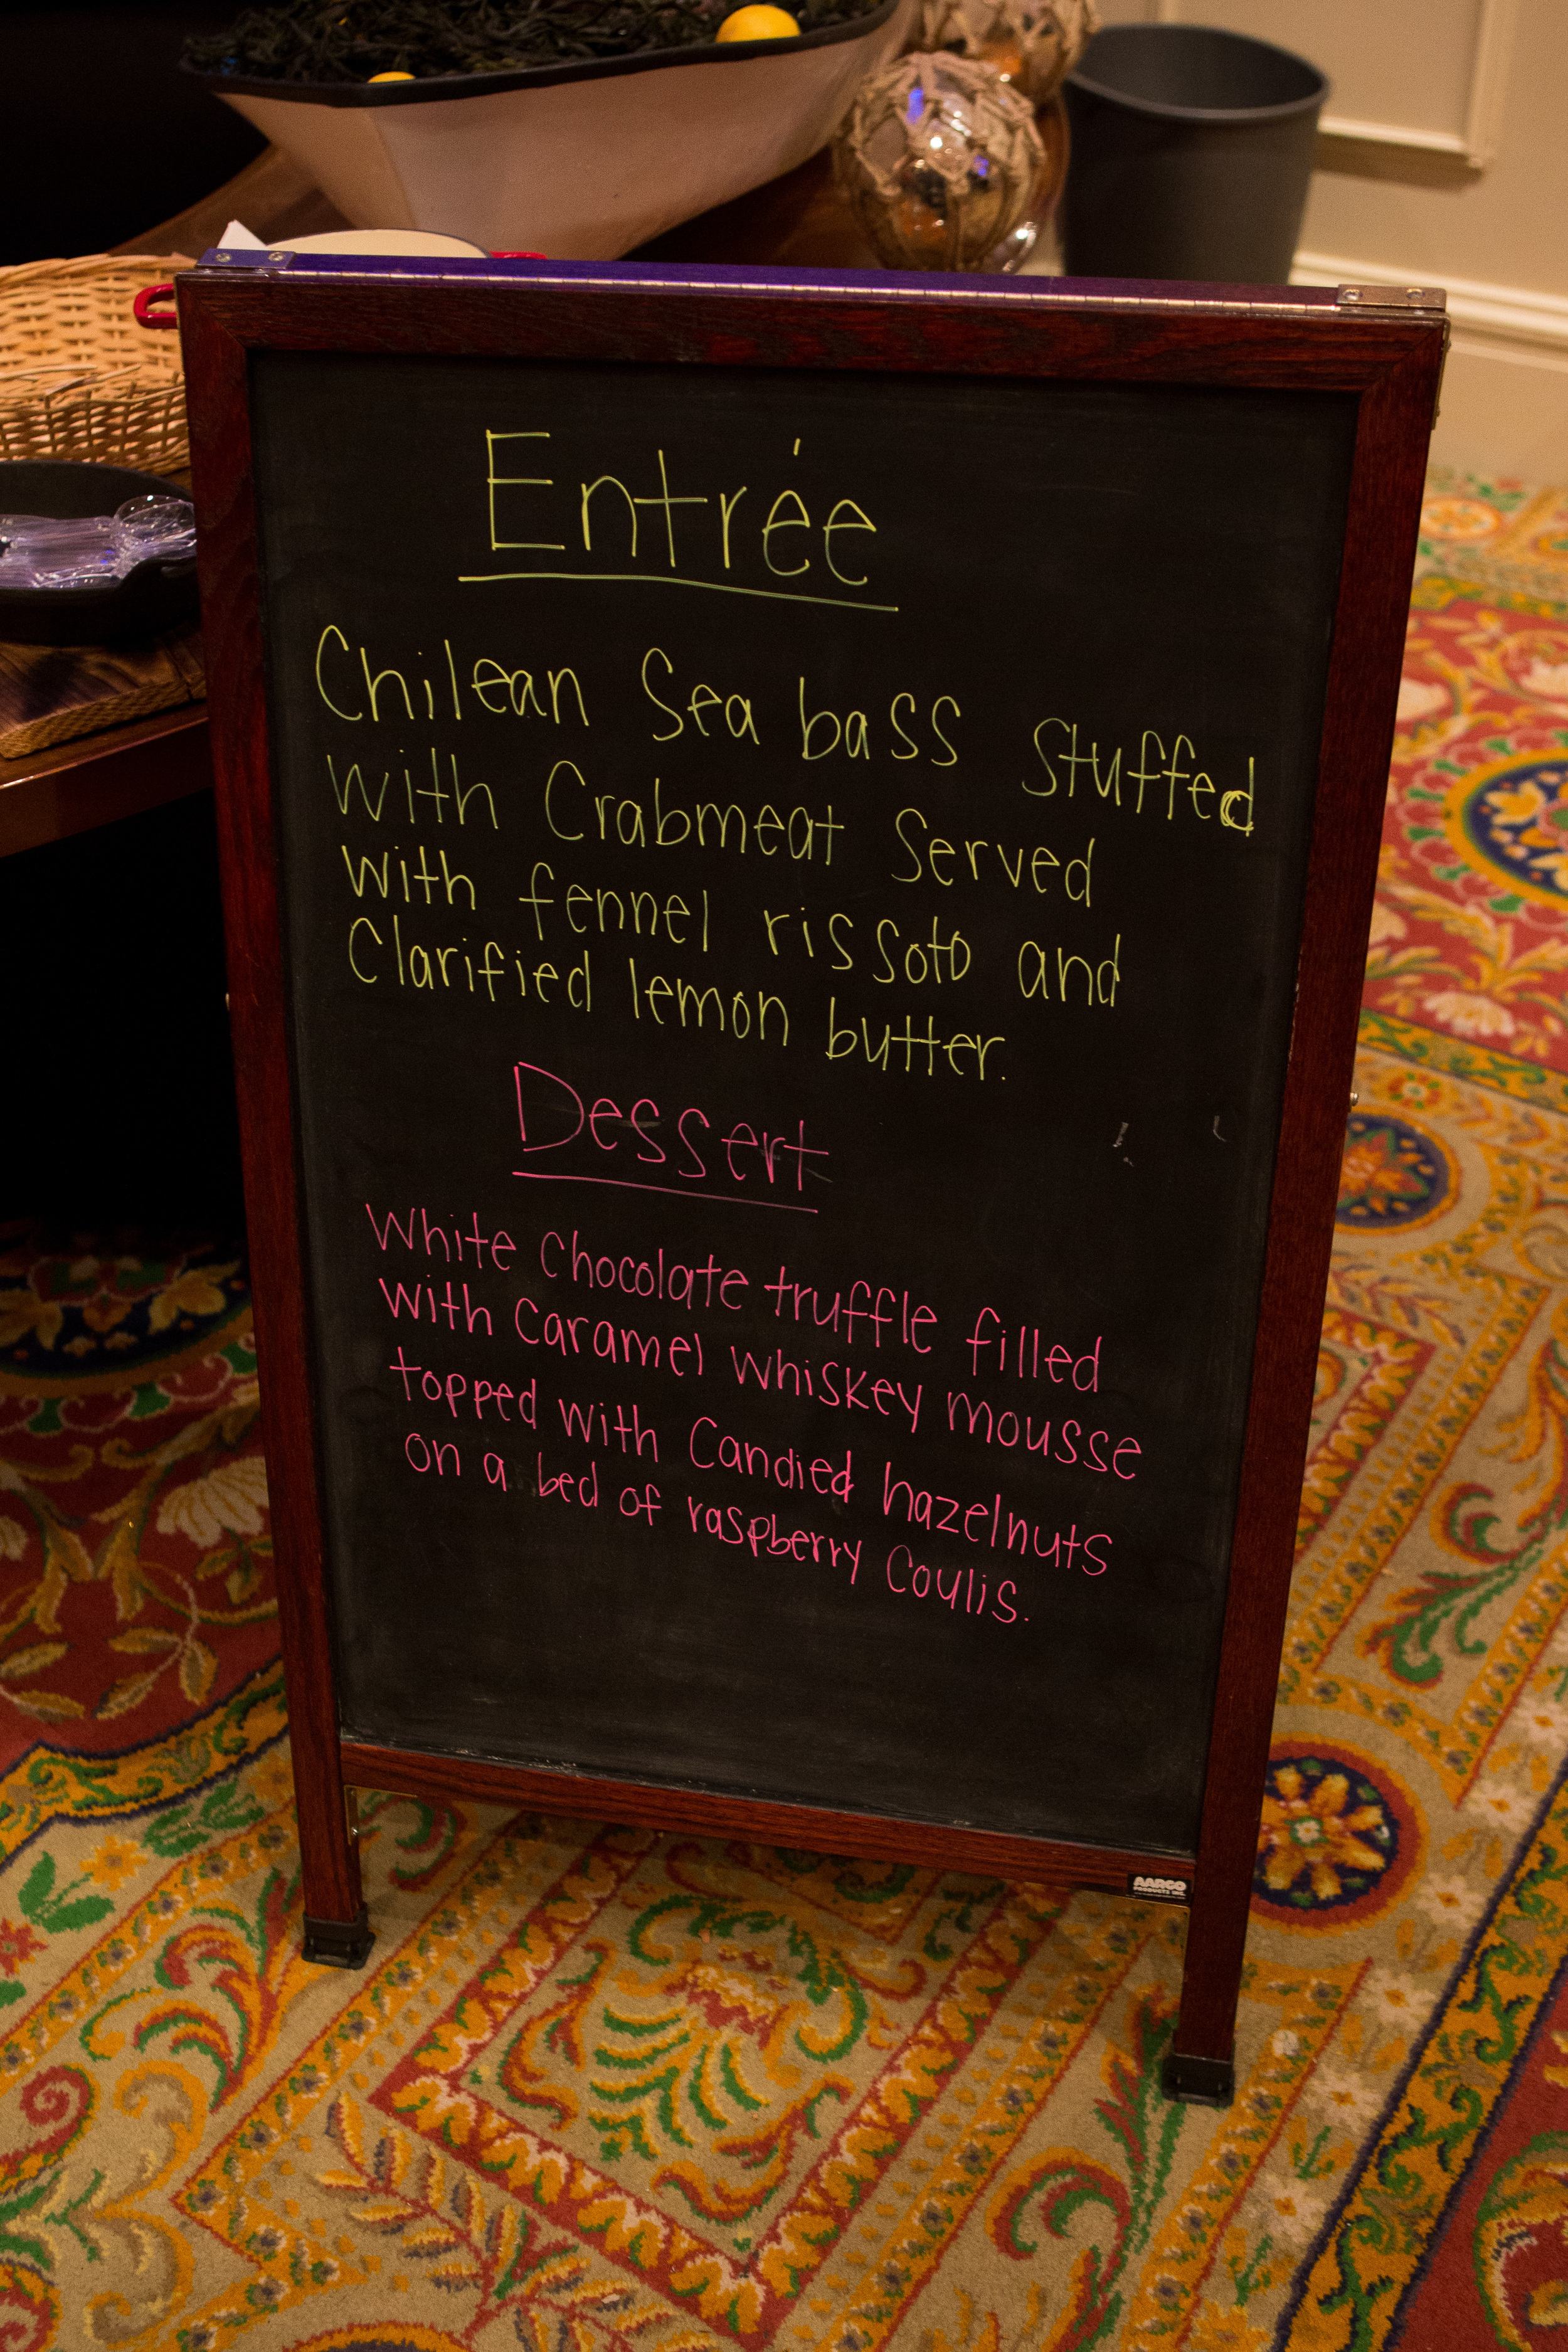 Entrée
Chilean Sea bass Stuffed
with Crabmeat Served
with fennel rissoto and
Clarified lemon butter.
Dessert
White Chocolate truffle filled
with Caramel whiskey mousse
topped with Candied hazelnuts
on a bed of raspberry Coulis.
AARCO
PRODUCTS INC.